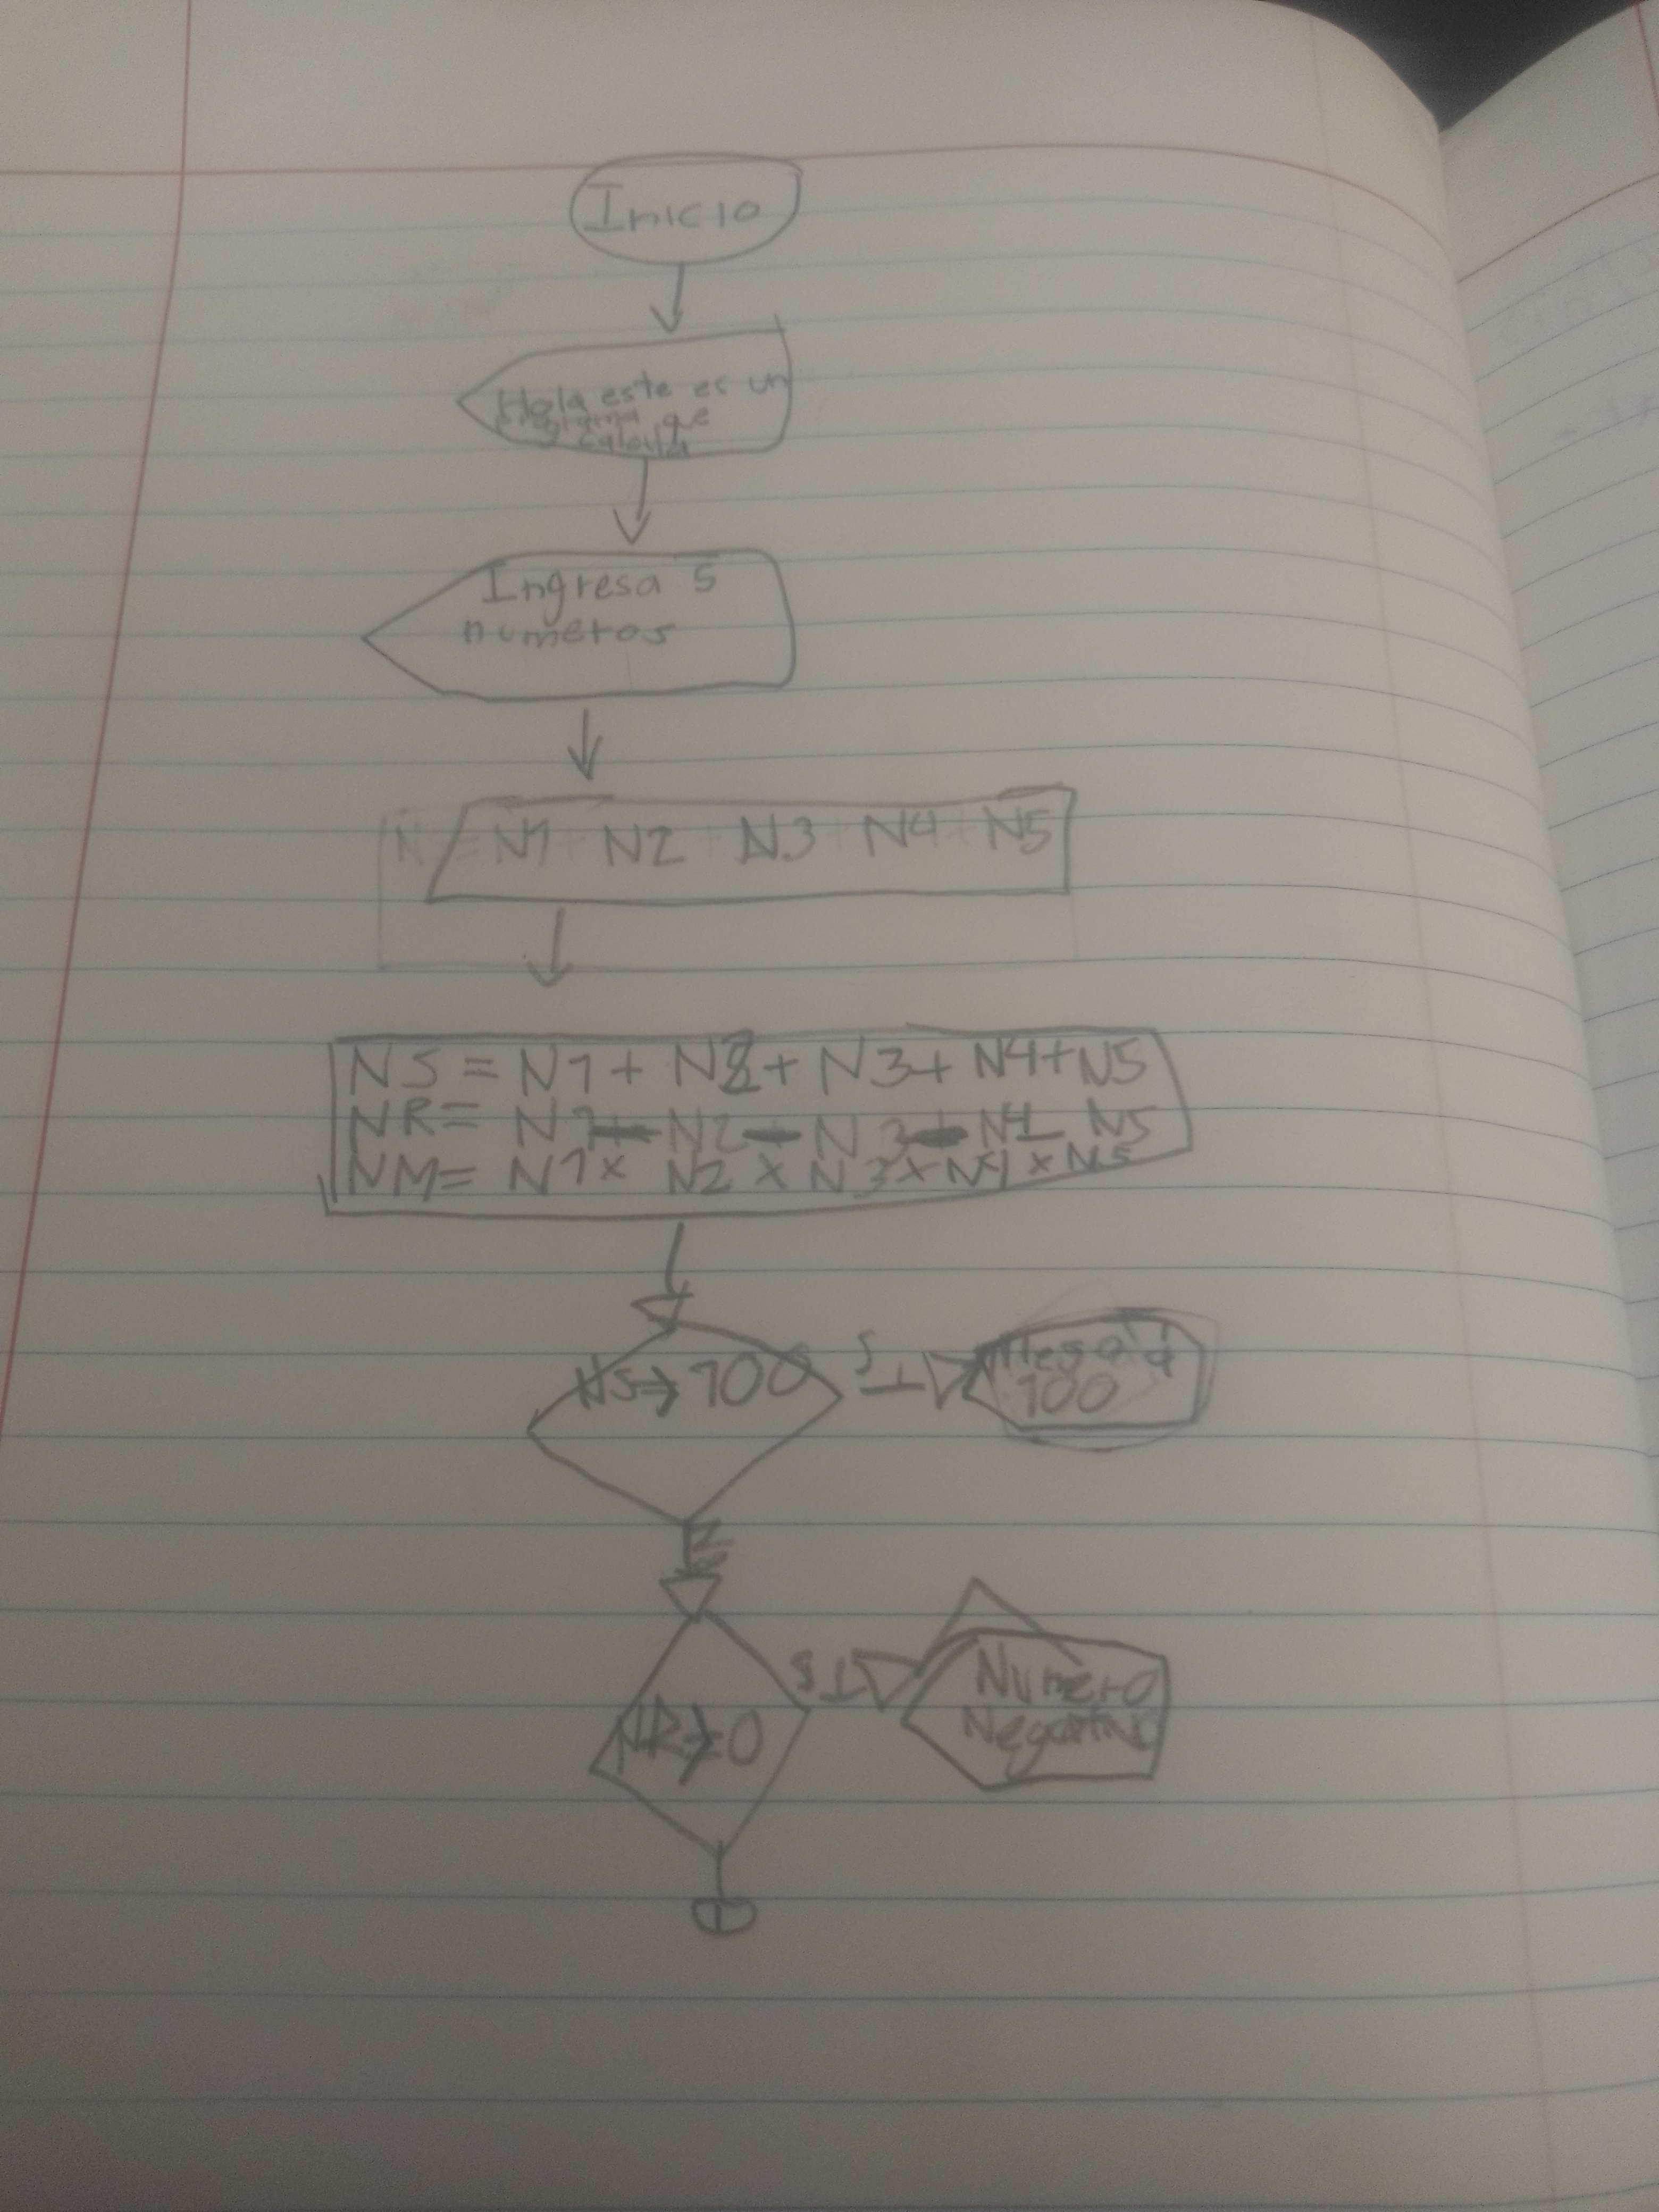 Inicio
Hola este es un
programa que
calcula
Ingresa 5
numeros
N = N1 + N2 + N3 + N4 + N5
NS = N1 + N2 + N3 + N4 + N5
NR = N1 - N2 - N3 - N4 - N5
NM = N1 x N2 x N3 x N4 x N5
NS > 100 SI llego a
100
NO
NR > 0 SI Numero
Negativo